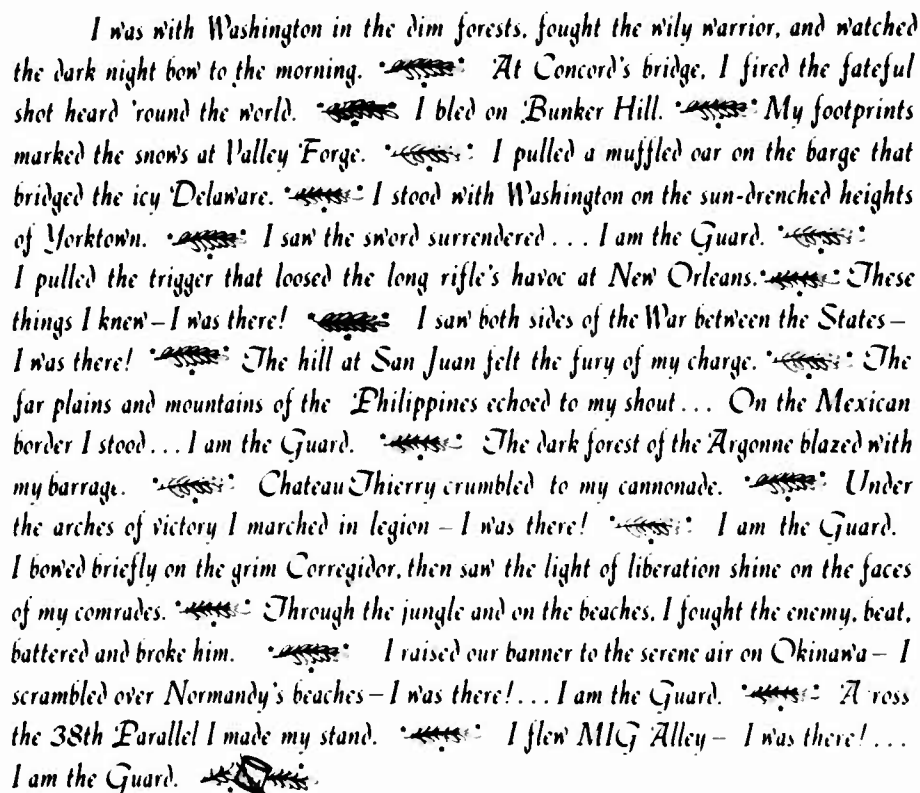 I was with Washington in the dim forests, fought the wily warrior, and watched
the dark night bow to the morning. At Concord's bridge, I fired the fateful
shot heard 'round the world. I bled on Bunker Hill. My footprints
marked the snows at Valley Forge. I pulled a muffled oar on the barge that
bridged the icy Delaware. I stood with Washington on the sun-drenched heights
of Yorktown. I saw the sword surrendered . . . I am the Guard.
I pulled the trigger that loosed the long rifle's havoc at New Orleans. These
things I knew – I was there! I saw both sides of the War between the States –
I was there! The hill at San Juan felt the fury of my charge. The
far plains and mountains of the Philippines echoed to my shout . . . On the Mexican
border I stood . . . I am the Guard. The dark forest of the Argonne blazed with
my barrage. Chateau Thierry crumbled to my cannonade. Under
the arches of victory I marched in legion – I was there! I am the Guard.
I bowed briefly on the grim Corregidor, then saw the light of liberation shine on the faces
of my comrades. Through the jungle and on the beaches, I fought the enemy, beat,
battered and broke him. I raised our banner to the serene air on Okinawa – I
scrambled over Normandy's beaches – I was there! . . . I am the Guard. A ross
the 38th Parallel I made my stand. I flew MIG Alley – I was there! . . .
I am the Guard.